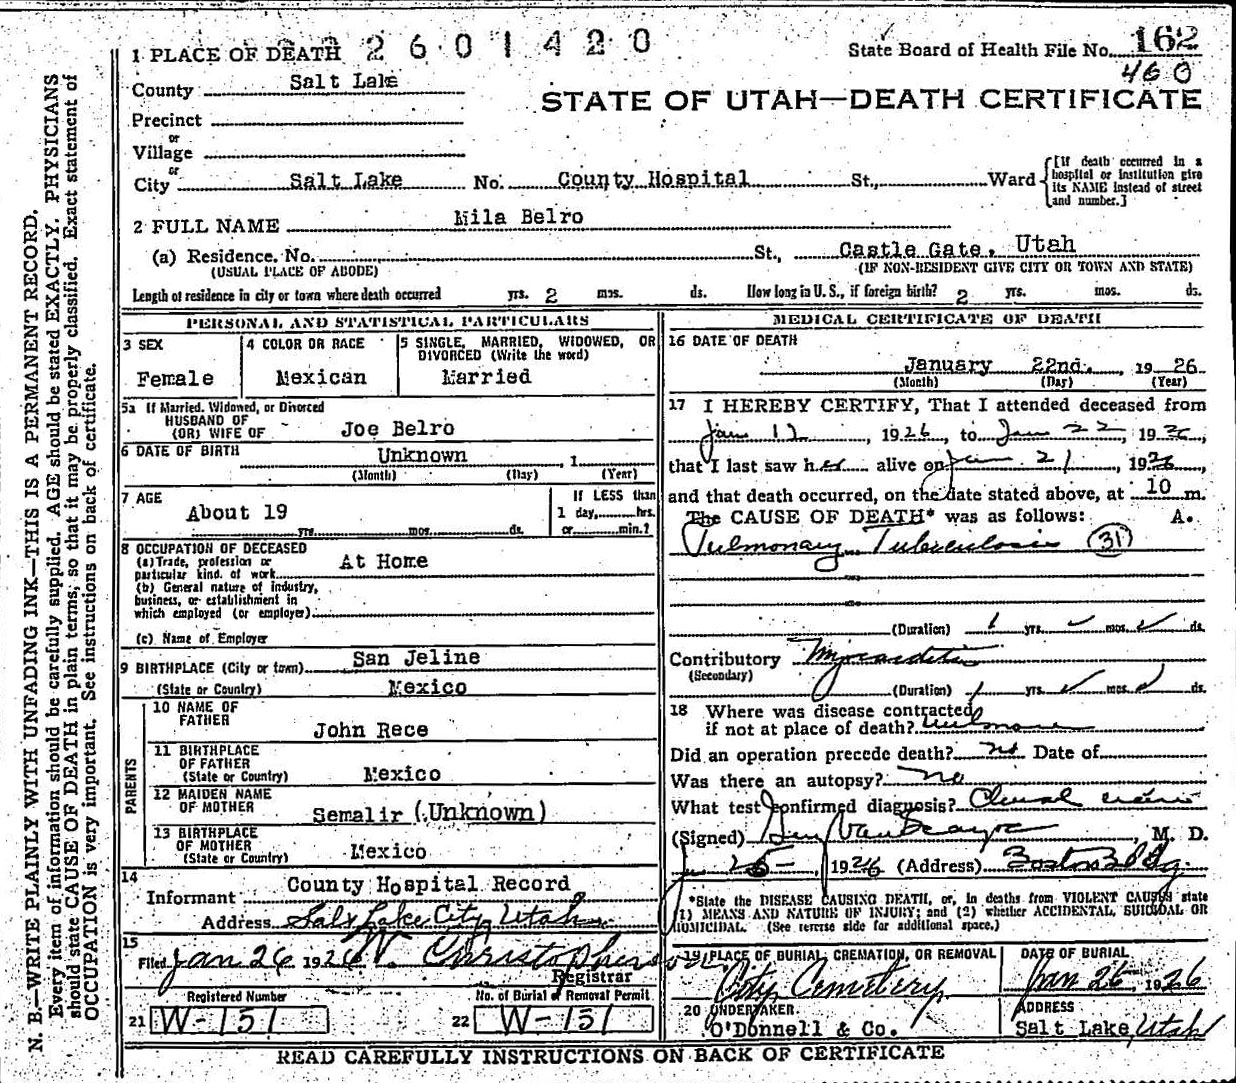 1 PLACE OF DEATH 2601420
State Board of Health File No. 162
460
County Salt Lake
STATE OF UTAH—DEATH CERTIFICATE
Precinct
or
Village
or
City Salt Lake No. County Hospital St., Ward [If death occurred in a hospital or institution give its NAME instead of street and number.]
2 FULL NAME Mila Belro
(a) Residence. No. St., Castle Gate, Utah
(USUAL PLACE OF ABODE) (IF NON-RESIDENT GIVE CITY OR TOWN AND STATE)
Length of residence in city or town where death occurred yrs. 2 mos. ds. How long in U. S., if foreign birth? 2 yrs. mos. ds.
PERSONAL AND STATISTICAL PARTICULARS
3 SEX
Female
4 COLOR OR RACE
Mexican
5 SINGLE, MARRIED, WIDOWED, OR
DIVORCED (Write the word)
Married
5a If Married, Widowed, or Divorced
HUSBAND OF
(OR) WIFE OF Joe Belro
6 DATE OF BIRTH Unknown 1
(Month) (Day) (Year)
7 AGE
About 19
yrs. mos. ds.
If LESS than
1 day, hrs.
or min.?
8 OCCUPATION OF DECEASED
(a) Trade, profession or
particular kind of work At Home
(b) General nature of industry,
business, or establishment in
which employed (or employer)
(c) Name of Employer
9 BIRTHPLACE (City or town) San Jeline
(State or Country) Mexico
PARENTS
10 NAME OF
FATHER John Rece
11 BIRTHPLACE
OF FATHER
(State or Country) Mexico
12 MAIDEN NAME
OF MOTHER Semalir (Unknown)
13 BIRTHPLACE
OF MOTHER
(State or Country) Mexico
14
Informant County Hospital Record
Address Salt Lake City, Utah
15
Filed Jan 26 1926 W. Christopherson
Registrar
Registered Number No. of Burial or Removal Permit
21 W-151 22 W-151
MEDICAL CERTIFICATE OF DEATH
16 DATE OF DEATH
January 22nd. 1926
(Month) (Day) (Year)
17 I HEREBY CERTIFY, That I attended deceased from
Jan 12, 1926, to Jan 22, 1926,
that I last saw her alive on Jan 21, 1926,
and that death occurred, on the date stated above, at 10 m.
The CAUSE OF DEATH* was as follows: A.
Pulmonary Tuberculosis (31)
(Duration) 1 yrs. mos. ds.
Contributory Myocarditis
(Secondary)
(Duration) 1 yrs. mos. ds.
18 Where was disease contracted
if not at place of death?
Did an operation precede death? no Date of
Was there an autopsy? No
What test confirmed diagnosis?
(Signed) M. D.
Jan 25 1926 (Address) Boston Bldg.
*State the DISEASE CAUSING DEATH, or, in deaths from VIOLENT CAUSES state
1) MEANS AND NATURE OF INJURY; and (2) whether ACCIDENTAL, SUICIDAL OR
HOMICIDAL. (See reverse side for additional space.)
19 PLACE OF BURIAL, CREMATION, OR REMOVAL
City Cemetery
DATE OF BURIAL
Jan 26, 1926
20 UNDERTAKER
O'Donnell & Co.
ADDRESS
Salt Lake, Utah
READ CAREFULLY INSTRUCTIONS ON BACK OF CERTIFICATE
N. B.—WRITE PLAINLY WITH UNFADING INK—THIS IS A PERMANENT RECORD.
Every item of information should be carefully supplied. AGE should be stated EXACTLY. PHYSICIANS
should state CAUSE OF DEATH in plain terms, so that it may be properly classified. Exact statement of
OCCUPATION is very important. See instructions on back of certificate.